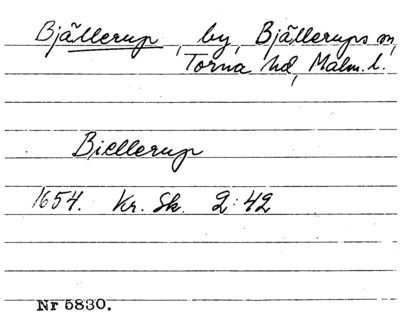 Bjällerup, by, Bjällerups sn,
Torna hd, Malm. l.
Biellerup
1654. Kr. Sk. 2:42
Nr 5830.